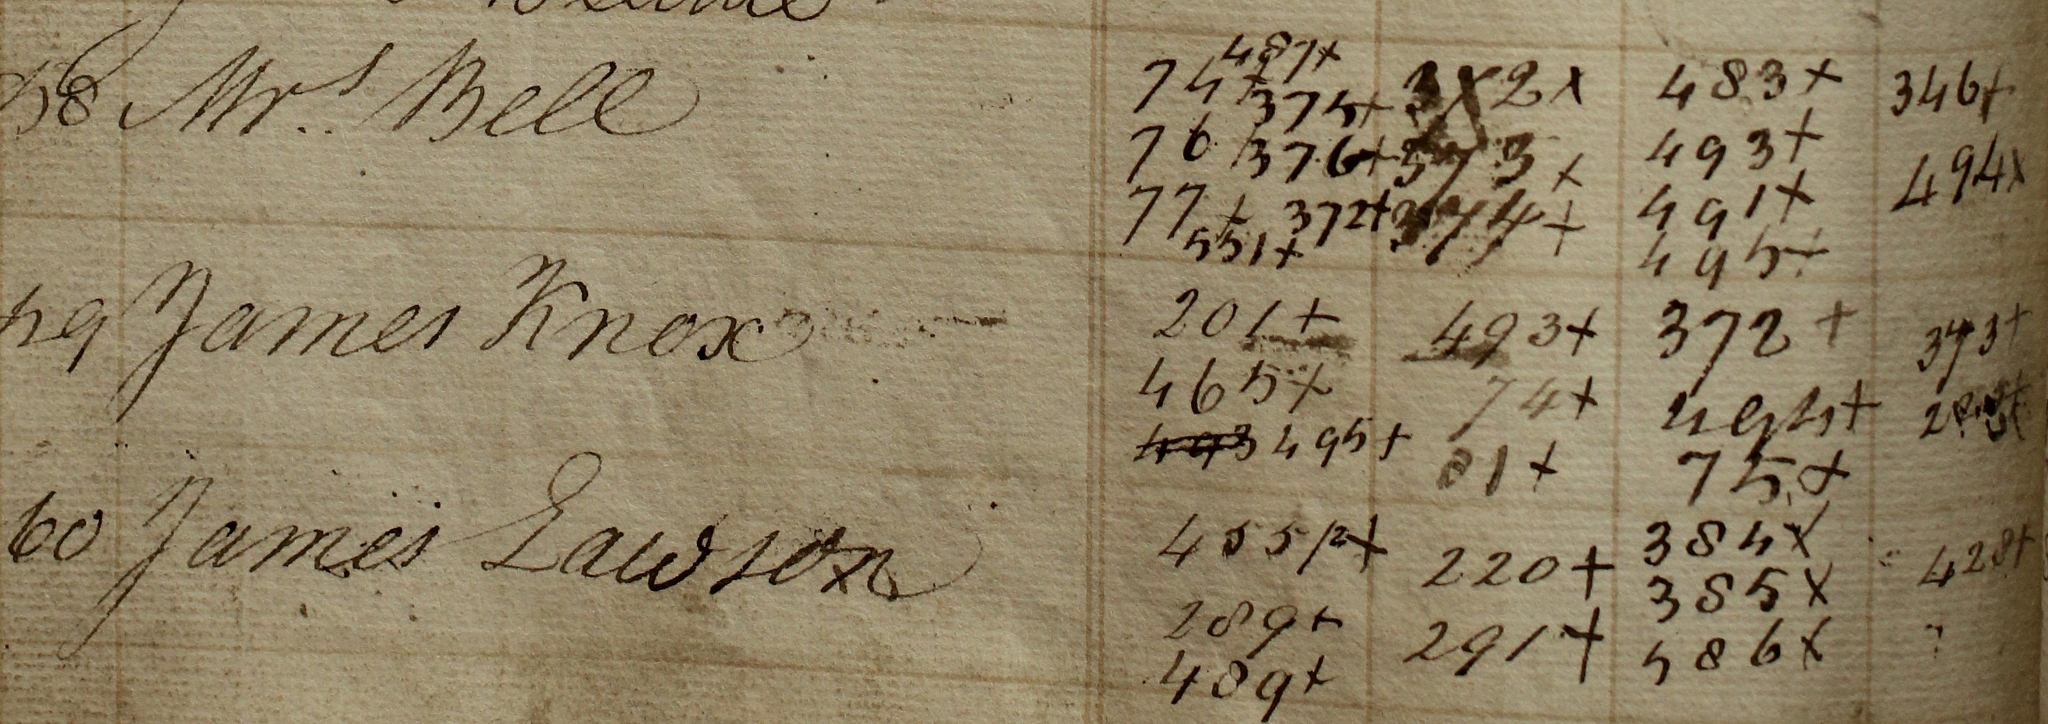 58 Mrs Bell
487+
74+ 375+ 3x2x 483+ 346+
76 376+ 373+ 493+ 494x
77+ 372+ 374+ 491+
551+ 495+
59 James Knox 201+ 493+ 372+ 373+
465+ 74+ 494+
493 495+ 81+ 75+
60 James Lawson 455/2+ 220+ 384x 428+
289+ 291+ 385x
489+ 486x